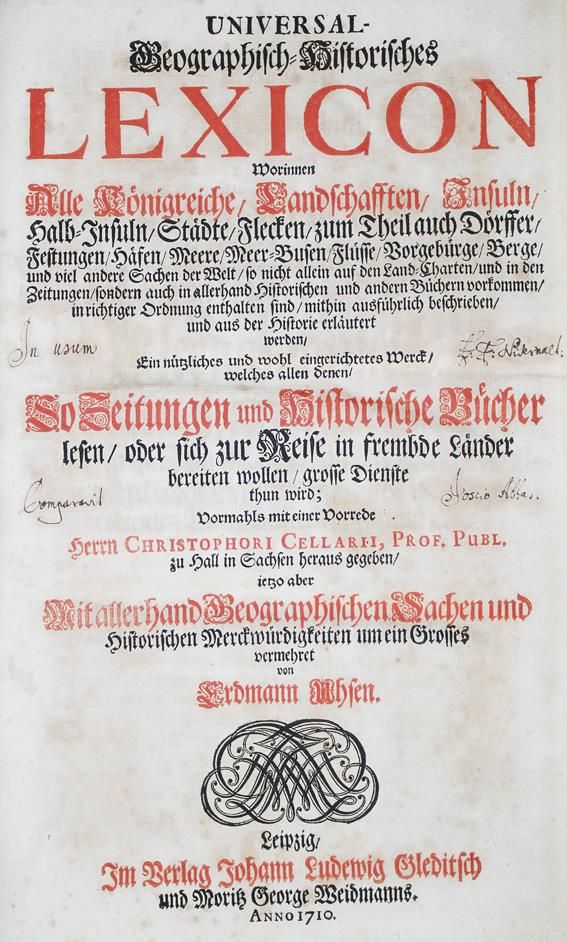 UNIVERSAL-
Geographisch-Historisches
LEXICON
Worinnen
Alle Königreiche/ Landschafften/ Insuln/
Halb-Insuln/ Städte/ Flecken/ zum Theil auch Dörffer/
Festungen/ Häfen/ Meere/ Meer-Busen/ Flüsse/ Vorgebürge/ Berge/
und viel andere Sachen der Welt/ so nicht allein auf den Land-Charten/ und in den
Zeitungen/ sondern auch in allerhand Historischen und andern Büchern vorkommen/
in richtiger Ordnung enthalten sind/ mithin ausführlich beschrieben/
und aus der Historie erläutert
werden/
In usum
Ein nützliches und wohl eingerichtetes Werck/
welches allen denen/
So Zeitungen und Historische Bücher
lesen/ oder sich zur Reise in frembde Länder
bereiten wollen/ grosse Dienste
thun wird;
Comparavit
Abbas.
Vormahls mit einer Vorrede
Herrn CHRISTOPHORI CELLARII, PROF. PUBL.
zu Hall in Sachsen heraus gegeben/
ietzo aber
Mit allerhand Geographischen Sachen und
Historischen Merckwürdigkeiten um ein Grosses
vermehret
von
Erdmann Uhsen.
Leipzig/
Im Verlag Johann Ludewig Gleditsch
und Moritz George Weidmanns.
ANNO 1710.